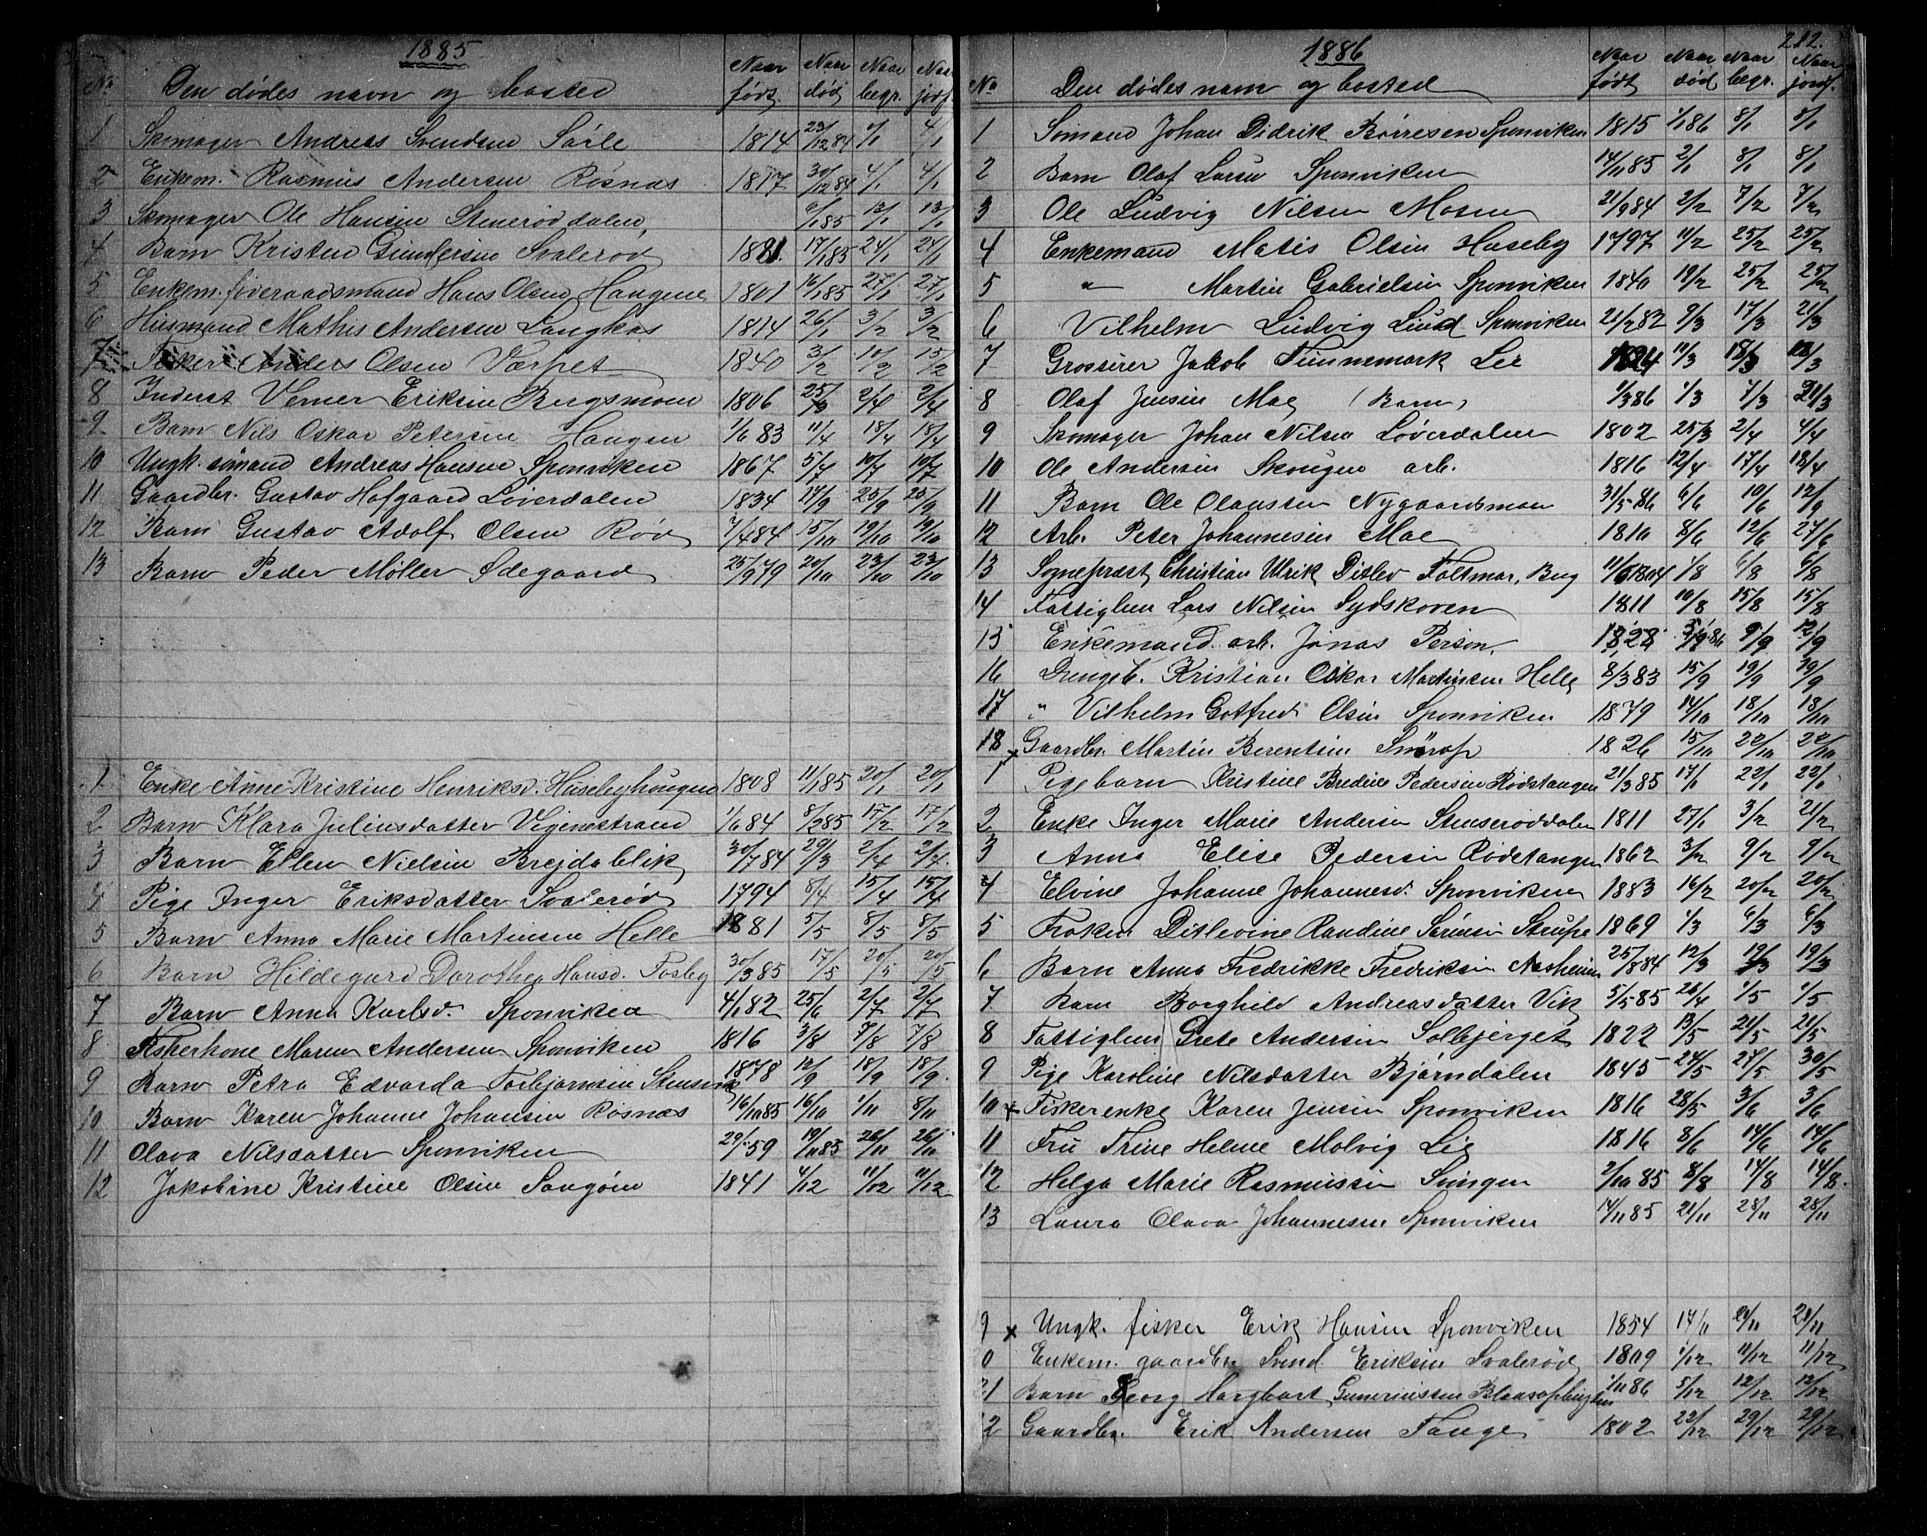 1885
No Den dødes navn og bosted Naar født Naar død Naar begr. Naar jordf.
1 Skomager Andreas Svendsen Sørle 1814 29/12 84 4/1 4/1
2 Enkem. Rasmus Andersen Røsnæs 1817 30/12 84 4/1 4/1
3 Skomager Ole Hansen Stenerøddalen, 6/1 85 13/1 13/1
4 Barn Kristen Gundersen Svalerød 1881 17/1 85 24/1 24/1
5 Enkem. føderaadsmand Hans Olsen Haugene 1801 16/1 85 27/1 27/1
6 Husmand Mathis Andersen Langkas 1814 26/1 3/2 3/2
7 Fisker Anders Olsen Varpet 1840 3/2 10/2 15/2
8 Inderst Verner Eriksen Bergsmoen 1806 25/3 2/4 2/4
9 Barn Nils Oskar Petersen Haugen 1/6 83 11/4 18/4 18/4
10 Ungk. sømand Andreas Hansen Sponviken 1867 5/7 10/7 10/7
11 Gaardbr. Gustav Hofgaard Løverdalen 1834 17/9 25/9 25/9
12 Barn Gustav Adolf Olsen Rød 7/4 84 15/10 19/10 19/10
13 Barn Peder Møller Ødegaard 25/9 79 20/10 23/10 23/10
1 Enke Anne Kristine Henriksd. Husebyhougen 1808 11/1 85 20/1 20/1
2 Barn Klara Juliusdatter Vigenestrand 1/6 84 8/2 85 17/2 17/2
3 Barn Ellen Nielsen Brejdablik 30/7 84 29/3 2/4 2/4
4 Pige Inger Eriksdatter Svalerød 1794 8/4 15/4 15/4
5 Barn Anna Marie Martinsen Helle 1881 5/5 8/5 8/5
6 Barn Hildegard Dorothea Hansd. Fosby 30/3 85 17/5 20/5 20/5
7 Barn Anna Karlsd. Sponviken 4/1 82 25/6 2/7 2/7
8 Fiskerkone Maren Andersen Sponviken 1816 3/8 7/8 7/8
9 Barn Petra Edvarda Torbjørnsen 1878 12/9 18/9 18/9
10 Barn Karen Johanne Johansen Røsnæs 16/10 85 16/10 1/11 8/11
11 Olava Nilsdatter Sponviken 29/1 59 19/11 85 26/11 26/11
12 Jakobine Kristine Olsen Sangøen 1841 4/12 11/12 11/12
212.
1886
No Den dødes navn og bosted Naar født Naar død Naar begr. Naar jordf.
1 Sømand Johan Didrik Børresen Sponviken 1815 1/1 86 8/1 8/1
2 Barn Olaf Larsen Sponviken 14/11 85 2/1 8/1 8/1
3 Ole Ludvig Nilsen Mosen 21/9 84 2/2 7/2 7/2
4 Enkemand Matis Olsen Huseby 1797 11/2 25/2 25/2
5 " Martin Gabrielsen Sponviken 1840 19/2 25/2 25/2
6 Vilhelm Ludvig Lund Sponviken 21/2 82 9/3 17/3 21/3
7 Grosserer Jakob Finnemark Lie 1824 11/3 18/3 18/3
8 Olaf Jensen Moe (Barn) 1/3 86 1/3 7/3 21/3
9 Skomager Johan Nilsen Løverdalen 1802 25/3 2/4 4/4
10 Ole Andersen Skougen arb. 1816 12/4 17/4 18/4
11 Barn Ole Olaussen Nygaardsmoen 31/5 86 6/6 10/6 12/9
12 Arb. Peter Johannesen Moe 1810 8/6 12/6 27/6
13 Sogneprest Christian Ulrik Ditlev Foltmar, Berg 11/6 1804 1/8 6/8 6/8
14 Fattiglem Lars Nilsen Sydskoven 1811 10/8 15/8 15/8
15 Enkemand arb. Jonas Person. 1828 5/9 86 9/9 12/9
16 Drengeb. Kristian Oskar Martinsen Helle 8/3 83 15/9 19/9 19/9
17 " Vilhelm Gotfred Olsen Sponviken 1879 14/10 18/10 18/10
18 Gaardbr. Martin Berentsen 1826 15/10 22/10 22/10
1 Pigebarn Kristine Bredine Pedersen Rødstangen 21/3 85 17/1 22/1 22/1
2 Enke Inger Marie Andersen Stenserøddalen 1811 27/1 3/2 21/2
3 Anna Elise Pedersen Rødstangen 1862 3/2 9/2 9/2
4 Elvine Johanne Johannesd. Sponviken 1883 16/2 20/2 20/2
5 Frøken Ditlevine Randine Sørensen Strupe 1869 1/3 6/3 6/3
6 Barn Anna Fredrikke Fredriksen Aasheim 25/8 84 12/3 19/3 19/3
7 Barn Borghild Andreasdatter Vik 5/5 85 26/4 1/5 1/5
8 Fattiglem Grete Andersen Solbjerget 1822 13/5 21/5 21/5
9 Pige Karoline Nilsdatter Bjørndalen 1845 24/5 27/5 30/5
10 x Fiskerenke Karen Jensen Sponviken 1816 28/5 3/6 3/6
11 Fru Trine Helene Molvig Lie 1816 8/6 14/6 14/6
12 Helga Marie Rasmussen Svingen 2/10 85 8/8 14/8 14/8
13 Laura Olava Johannesen Sponviken 14/11 85 21/11 28/11 28/11
9 x Ungk. fisker Erik Hansen Sponviken 1854 14/11 21/11 21/11
0 Enkem. gaardbr. Svend Eriksen Svalerød 1809 1/12 11/12 11/12
21 Barn Georg Hargbart Gunerinssen 1/11 86 5/12 12/12 12/12
2 Gaardbr. Erik Andersen Fange 1802 22/12 29/12 29/12